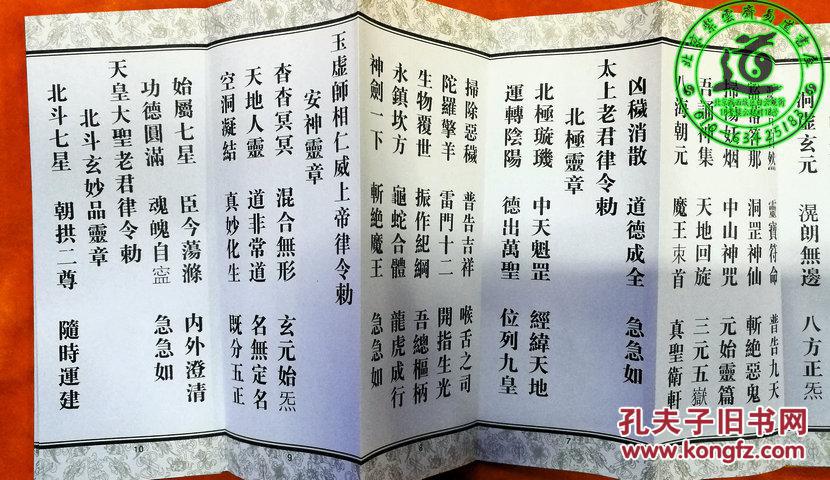 洞虛玄元　滉朗無邊　八方正炁
靈寶符命　普告九天
答那　洞罡神仙　斬絕惡鬼
妖烟　中山神咒　元始靈篇
吾誦集　天地回旋　三元五獄
海朝元　魔王束首　真聖衛軒
凶穢消散　道德成全　急急如
太上老君律令勅
北極靈章
北極璇璣　中天魁罡　經緯天地
運轉陰陽　德出萬聖　位列九皇
7
掃除惡穢　普告吉祥　喉舌之司
陀羅擎羊　雷門十二　開指生光
生物覆世　振作紀綱　吾總樞柄
永鎮坎方　龜蛇合體　龍虎成行
神劍一下　斬絕魔王　急急如
8
玉虛師相仁威上帝律令勅
安神靈章
杳杳冥冥　混合無形　玄元始炁
天地人靈　道非常道　名無定名
空洞凝結　真妙化生　既分五正
9
始屬七星　臣今蕩滌　內外澄清
功德圓滿　魂魄自寍　急急如
天皇大聖老君律令勅
北斗玄妙品靈章
北斗七星　朝拱二尊　隨時運建
10
道
孔夫子旧书网
kongfz.com